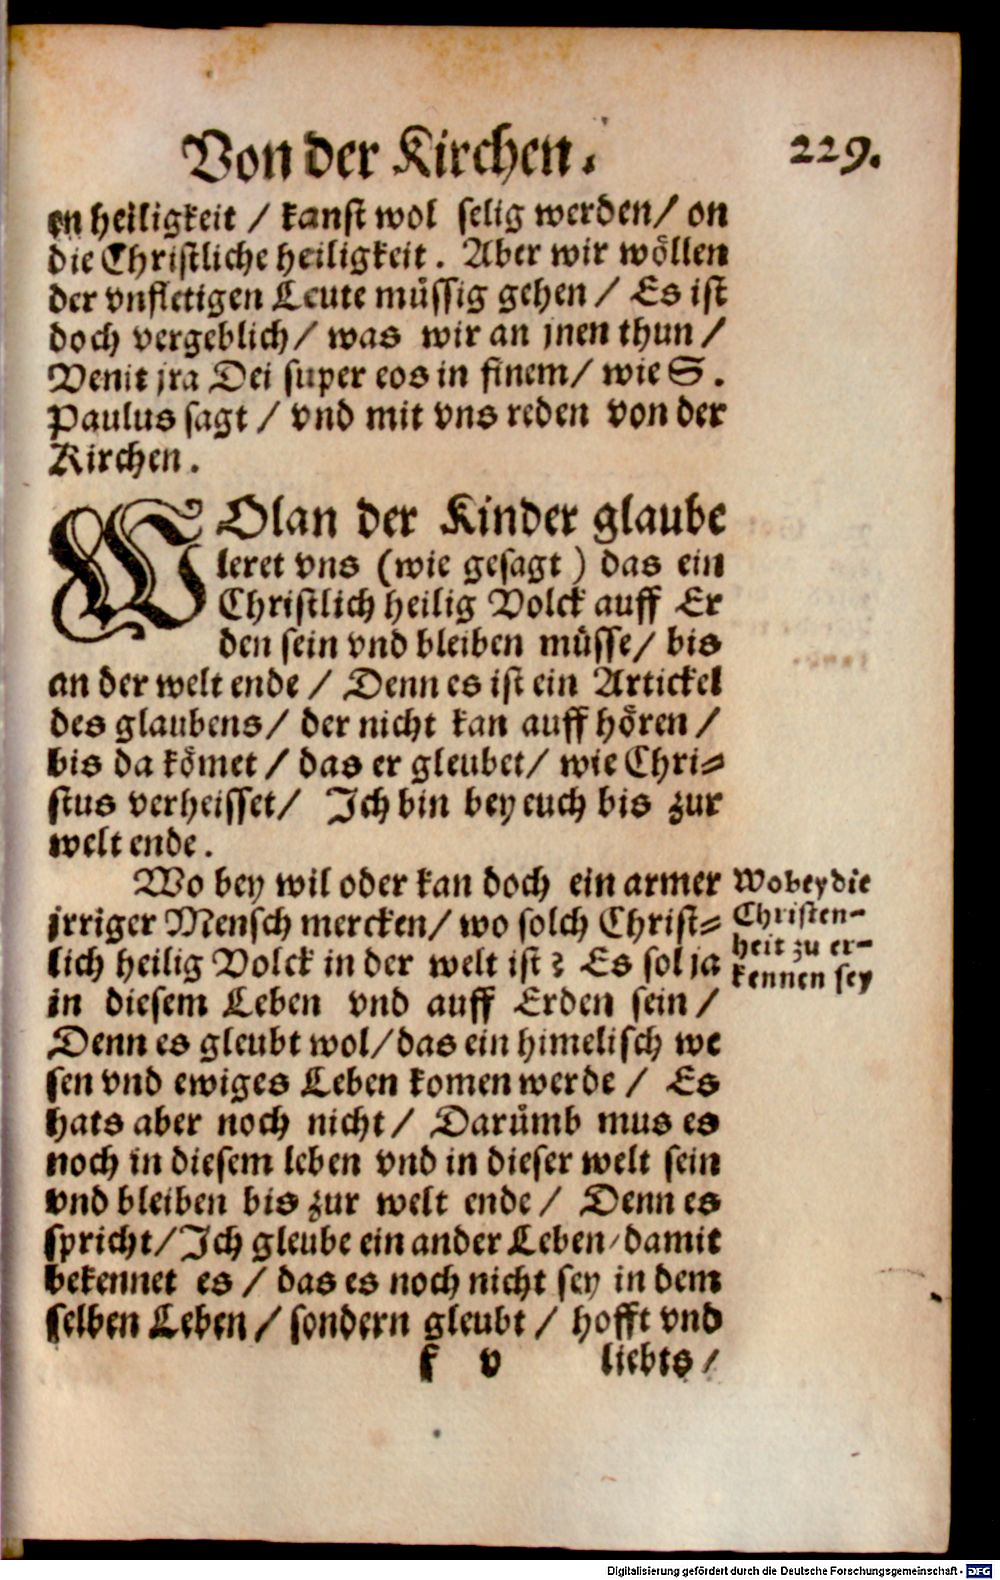 Von der Kirchen. 229.
en heiligkeit / kanst wol selig werden/ on
die Christliche heiligkeit. Aber wir wöllen
der vnfletigen Leute müssig gehen / Es ist
doch vergeblich/ was wir an jnen thun /
Venit jra Dei super eos in finem/ wie S.
Paulus sagt / vnd mit vns reden von der
Kirchen.
WOlan der Kinder glaube
leret vns (wie gesagt) das ein
Christlich heilig Volck auff Er
den sein vnd bleiben müsse/ bis
an der welt ende / Denn es ist ein Artickel
des glaubens/ der nicht kan auff hören /
bis da kömet / das er gleubet/ wie Chri=
stus verheisset/ Ich bin bey euch bis zur
welt ende.
Wo bey wil oder kan doch ein armer
jrriger Mensch mercken/ wo solch Christ=
lich heilig Volck in der welt ist? Es sol ja
in diesem Leben vnd auff Erden sein /
Denn es gleubt wol/ das ein himelisch we
sen vnd ewiges Leben komen werde / Es
hats aber noch nicht / Darümb mus es
noch in diesem leben vnd in dieser welt sein
vnd bleiben bis zur welt ende / Denn es
spricht/ Ich gleube ein ander Leben/ damit
bekennet es / das es noch nicht sey in dem
selben Leben / sondern gleubt / hofft vnd
f v liebts /
Wobey die
Christen-
heit zu er-
kennen sey
Digitalisierung gefördert durch die Deutsche Forschungsgemeinschaft - DFG